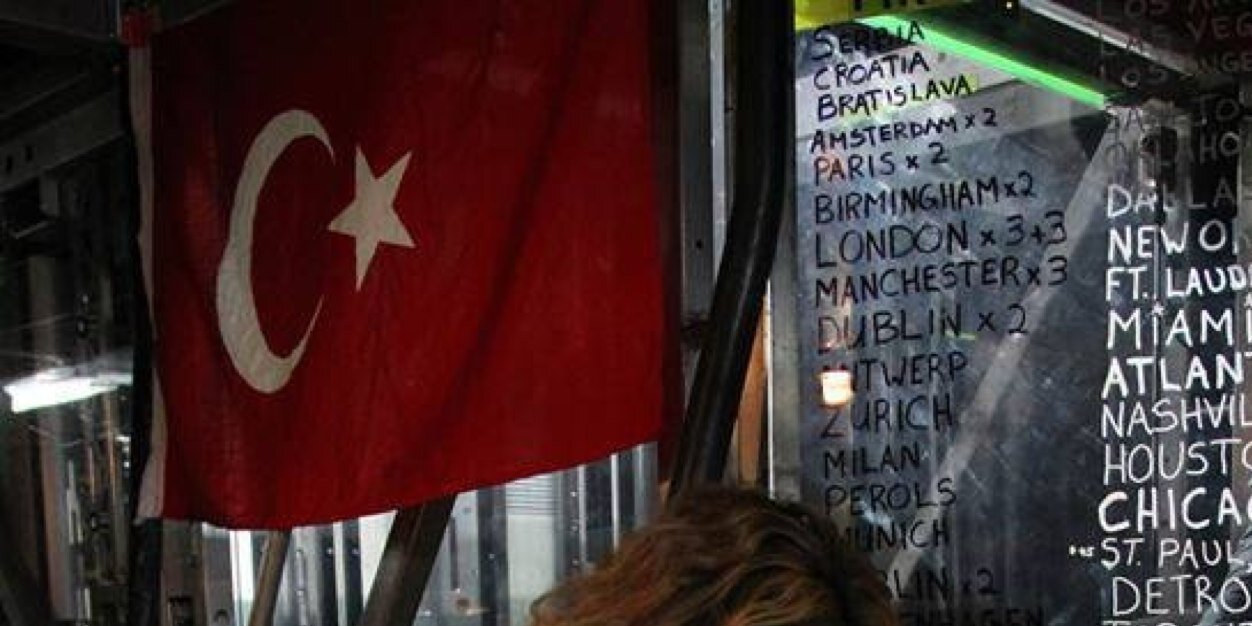 SERBIA
CROATIA
BRATISLAVA
AMSTERDAM x 2
PARIS x 2
BIRMINGHAM x2
LONDON x 3+3
MANCHESTER x 3
DUBLIN x 2
NTWERP
ZURICH
MILAN
PEROLS
MUNICH
LIN x 2
HAGEN
AS VEG
DALLA
NEW O
FT. LAUD
MiAMI
ATLANT
NASHVIL
HOUSTO
CHICA
ST. PAUL
DETRO